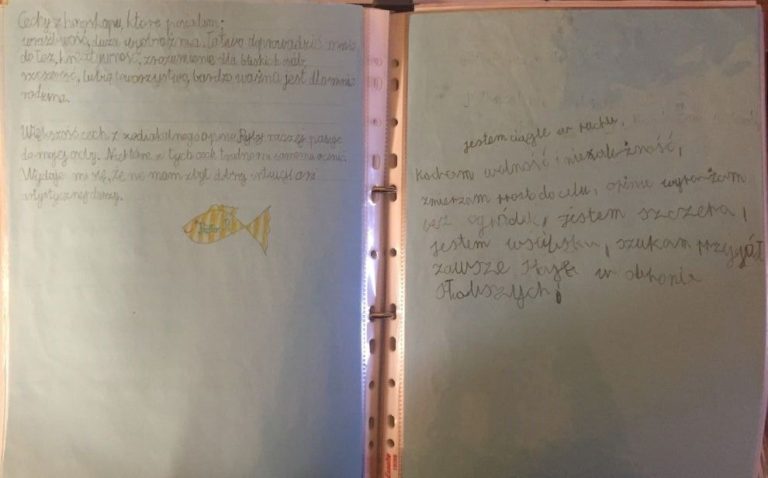 Cechy z horoskopu, które posiadam:
wrażliwość, duża wyobraźnia, łatwo doprowadzić mnie
do łez, kreatywność, zrozumienie dla bliskich osób,
szczerość, lubię towarzystwo, bardzo ważna jest dla mnie
rodzina.
Większość cech z zodiakalnego opisu Ryby raczej pasuje
do mojej osoby. Niektóre z tych cech trudno mi samemu ocenić.
Wydaje mi się, że nie mam zbyt dobrej
artystycznej duszy.
jestem ciągle w ruchu,
Kocham wolność i niezależność,
zmierzam prosto do celu, opinie wyrażam
bez ogródek, jestem szczera,
jestem wścibska, szukam przyjaźni
zawsze staję w obronie
słabszych,